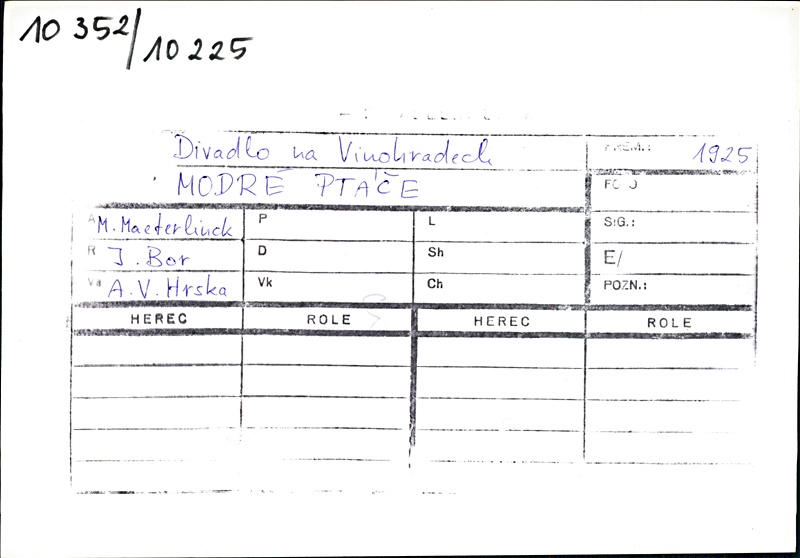 10 352/10 225
Divadlo na Vinohradech PREM.: 1925
MODRÉ PTÁČE
A M. Maeterlinck P L SIG.:
R J. Bor D Sh E/
Va A.V. Hrska Vk Ch POZN.:
HEREC ROLE HEREC ROLE